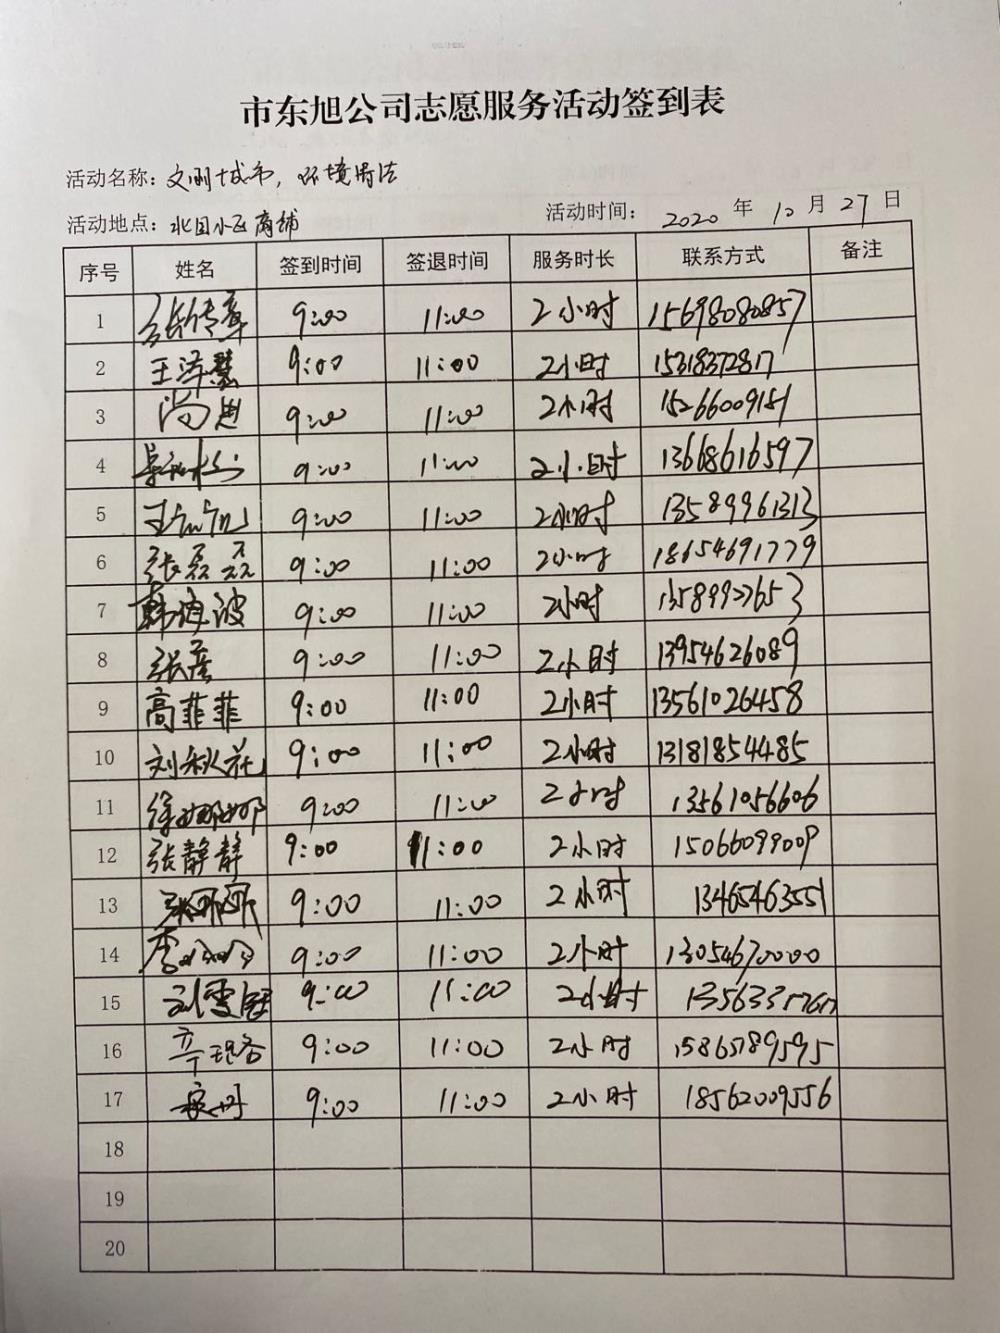 市东旭公司志愿服务活动签到表
活动名称：文明城市，环境清洁
活动地点：北田小区商铺 活动时间：2020 年 12 月 27 日
序号 姓名 签到时间 签退时间 服务时长 联系方式 备注
1 张传章 9:00 11:00 2小时 15698080857
2 王泽慧 9:00 11:00 2小时 15318372817
3 尚进 9:00 11:00 2小时 15266009151
4 9:00 11:00 2小时 13668616597
5 9:00 11:00 2小时 13589961313
6 张磊磊 9:00 11:00 2小时 18654691779
7 韩迎波 9:00 11:00 2小时 13589927653
8 张彦 9:00 11:00 2小时 13954626089
9 高菲菲 9:00 11:00 2小时 13561026458
10 刘秋花 9:00 11:00 2小时 13181854485
11 徐娜娜 9:00 11:00 2小时 13561056606
12 张静静 9:00 11:00 2小时 15066099009
13 9:00 11:00 2小时 13465463551
14 李 9:00 11:00 2小时 13054670000
15 刘雪 9:00 11:00 2小时
16 9:00 11:00 2小时 15865789595
17 9:00 11:00 2小时 18562009556
18
19
20